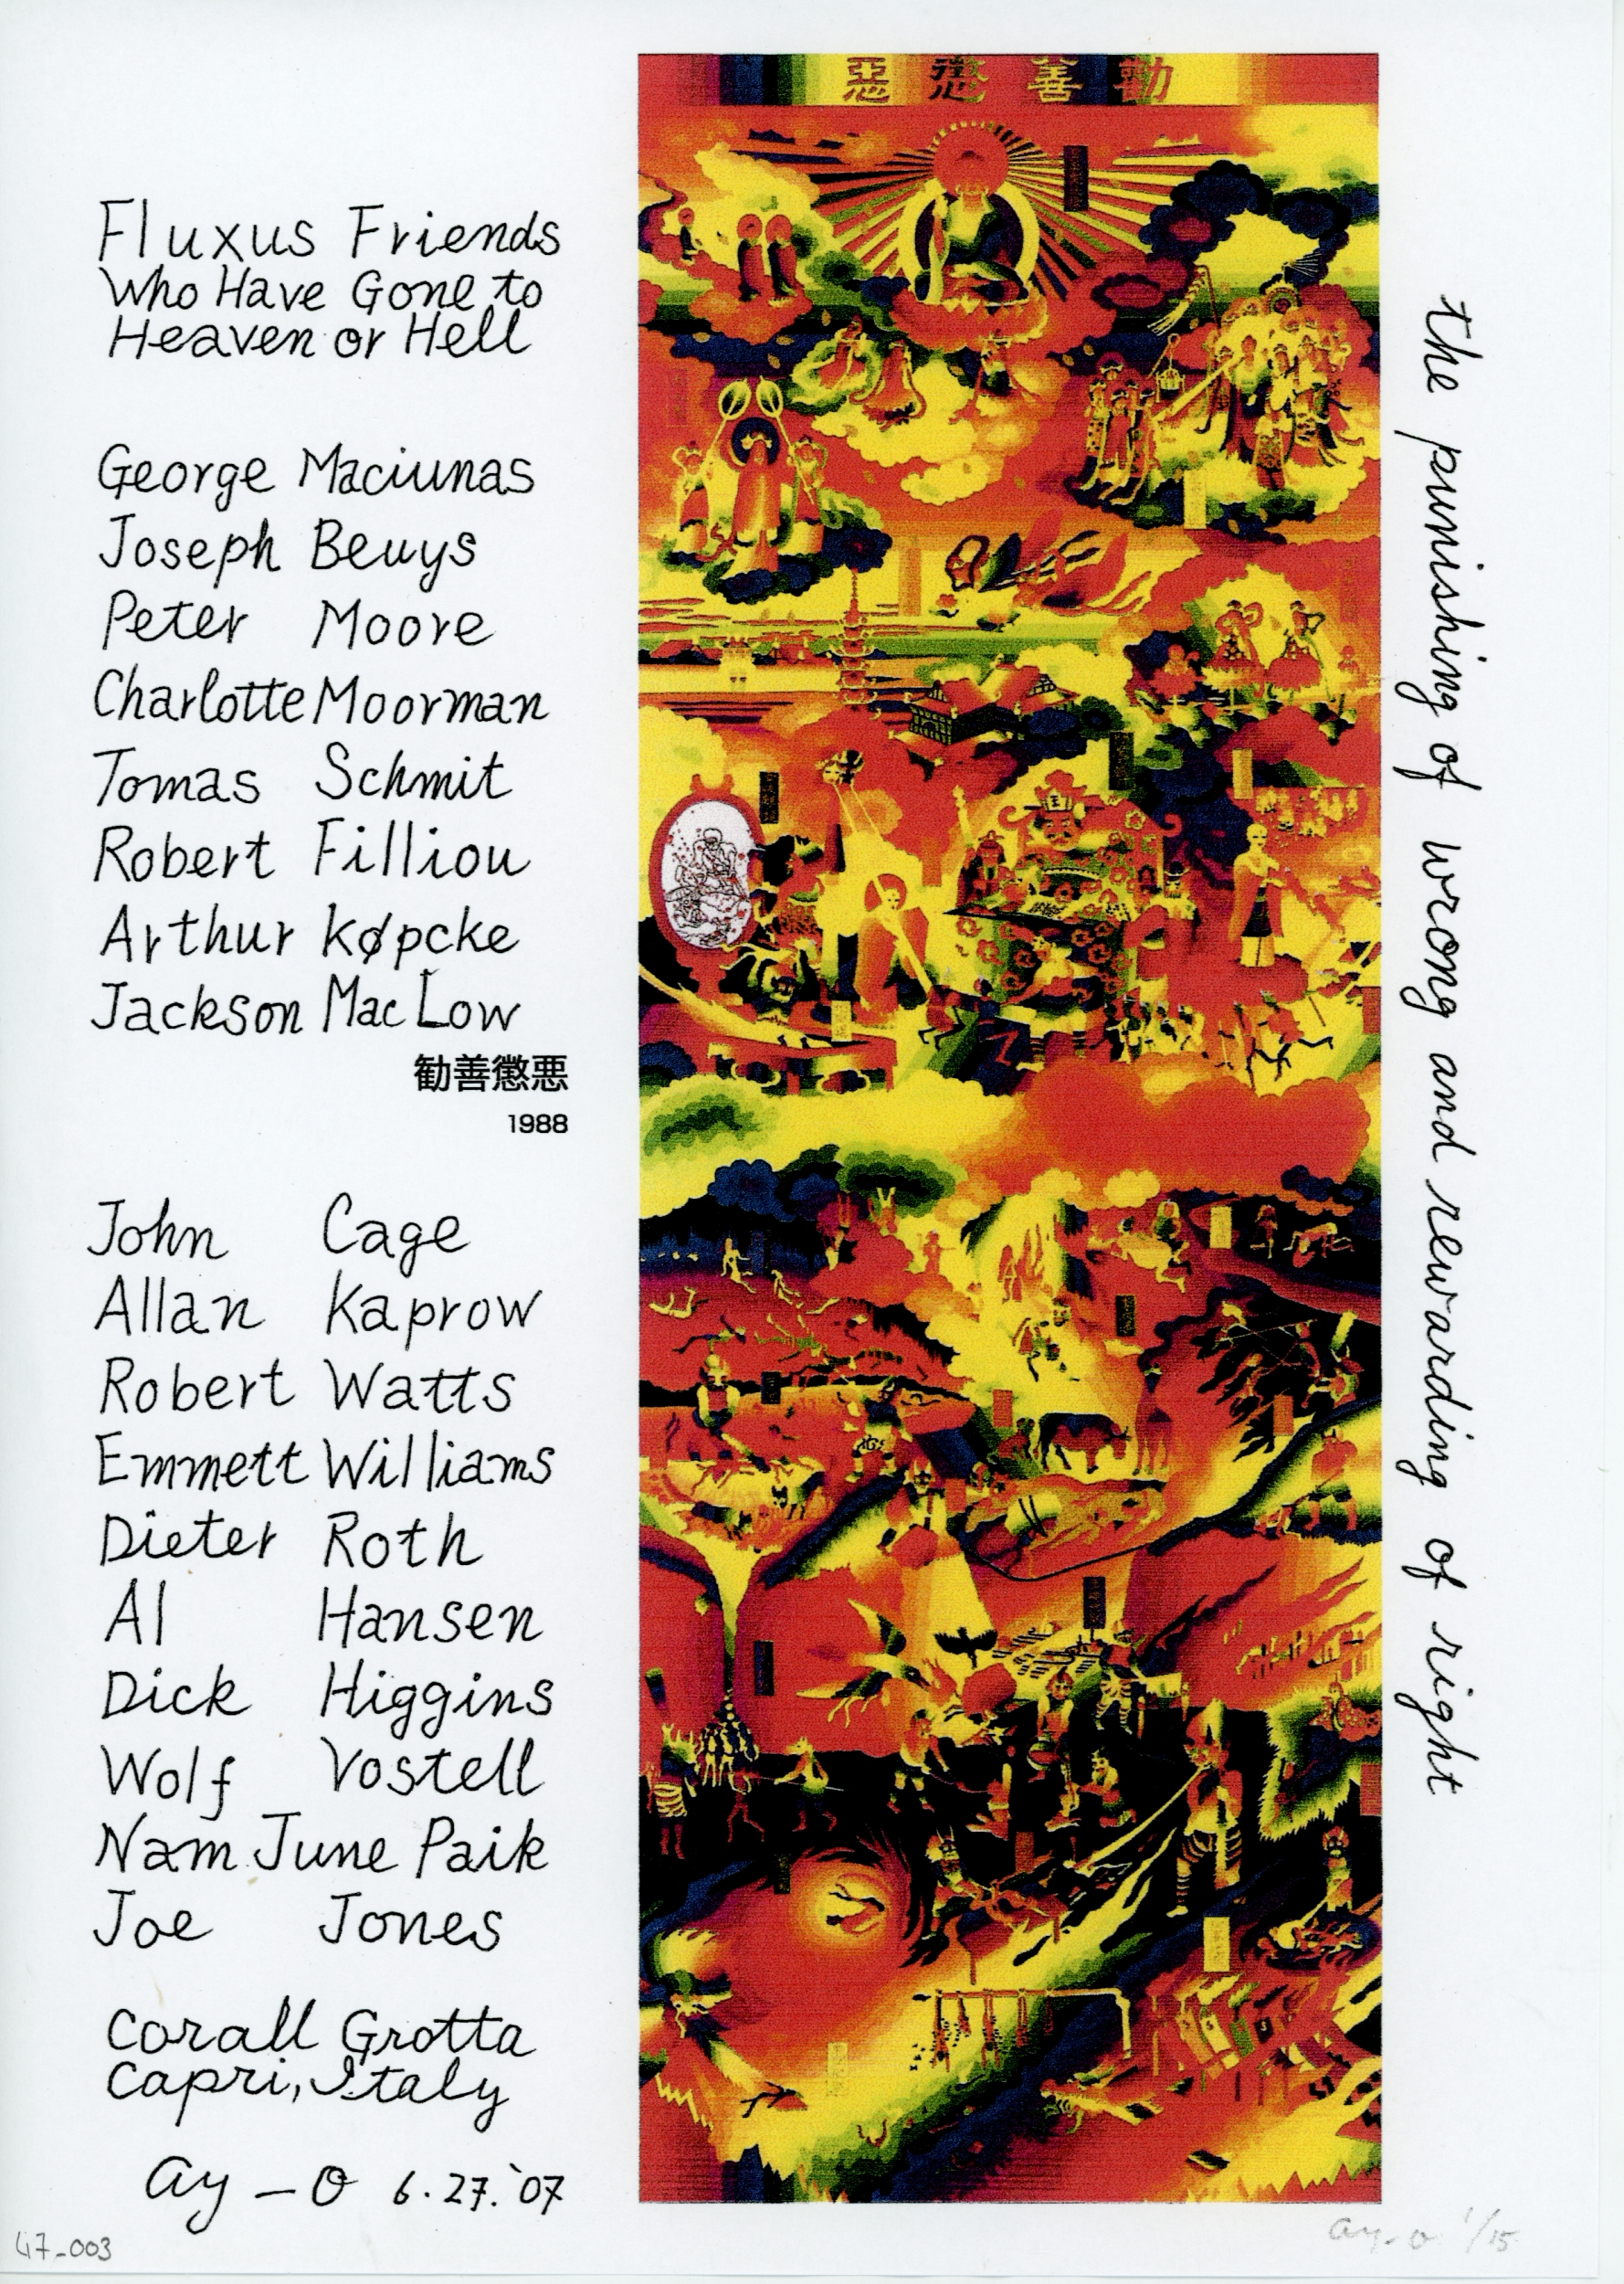 Fluxus Friends
Who Have Gone to
Heaven or Hell
George Maciunas
Joseph Beuys
Peter Moore
Charlotte Moorman
Tomas Schmit
Robert Filliou
Arthur Køpcke
Jackson Mac Low
勧善懲悪
1988
John Cage
Allan Kaprow
Robert Watts
Emmett Williams
Dieter Roth
Al Hansen
Dick Higgins
Wolf Vostell
Nam June Paik
Joe Jones
Corall Grotta
Capri, Italy
ay-o 6.27.'07
47-003
惡懲善勸
the punishing of wrong and rewarding of right
ay-o 1/15